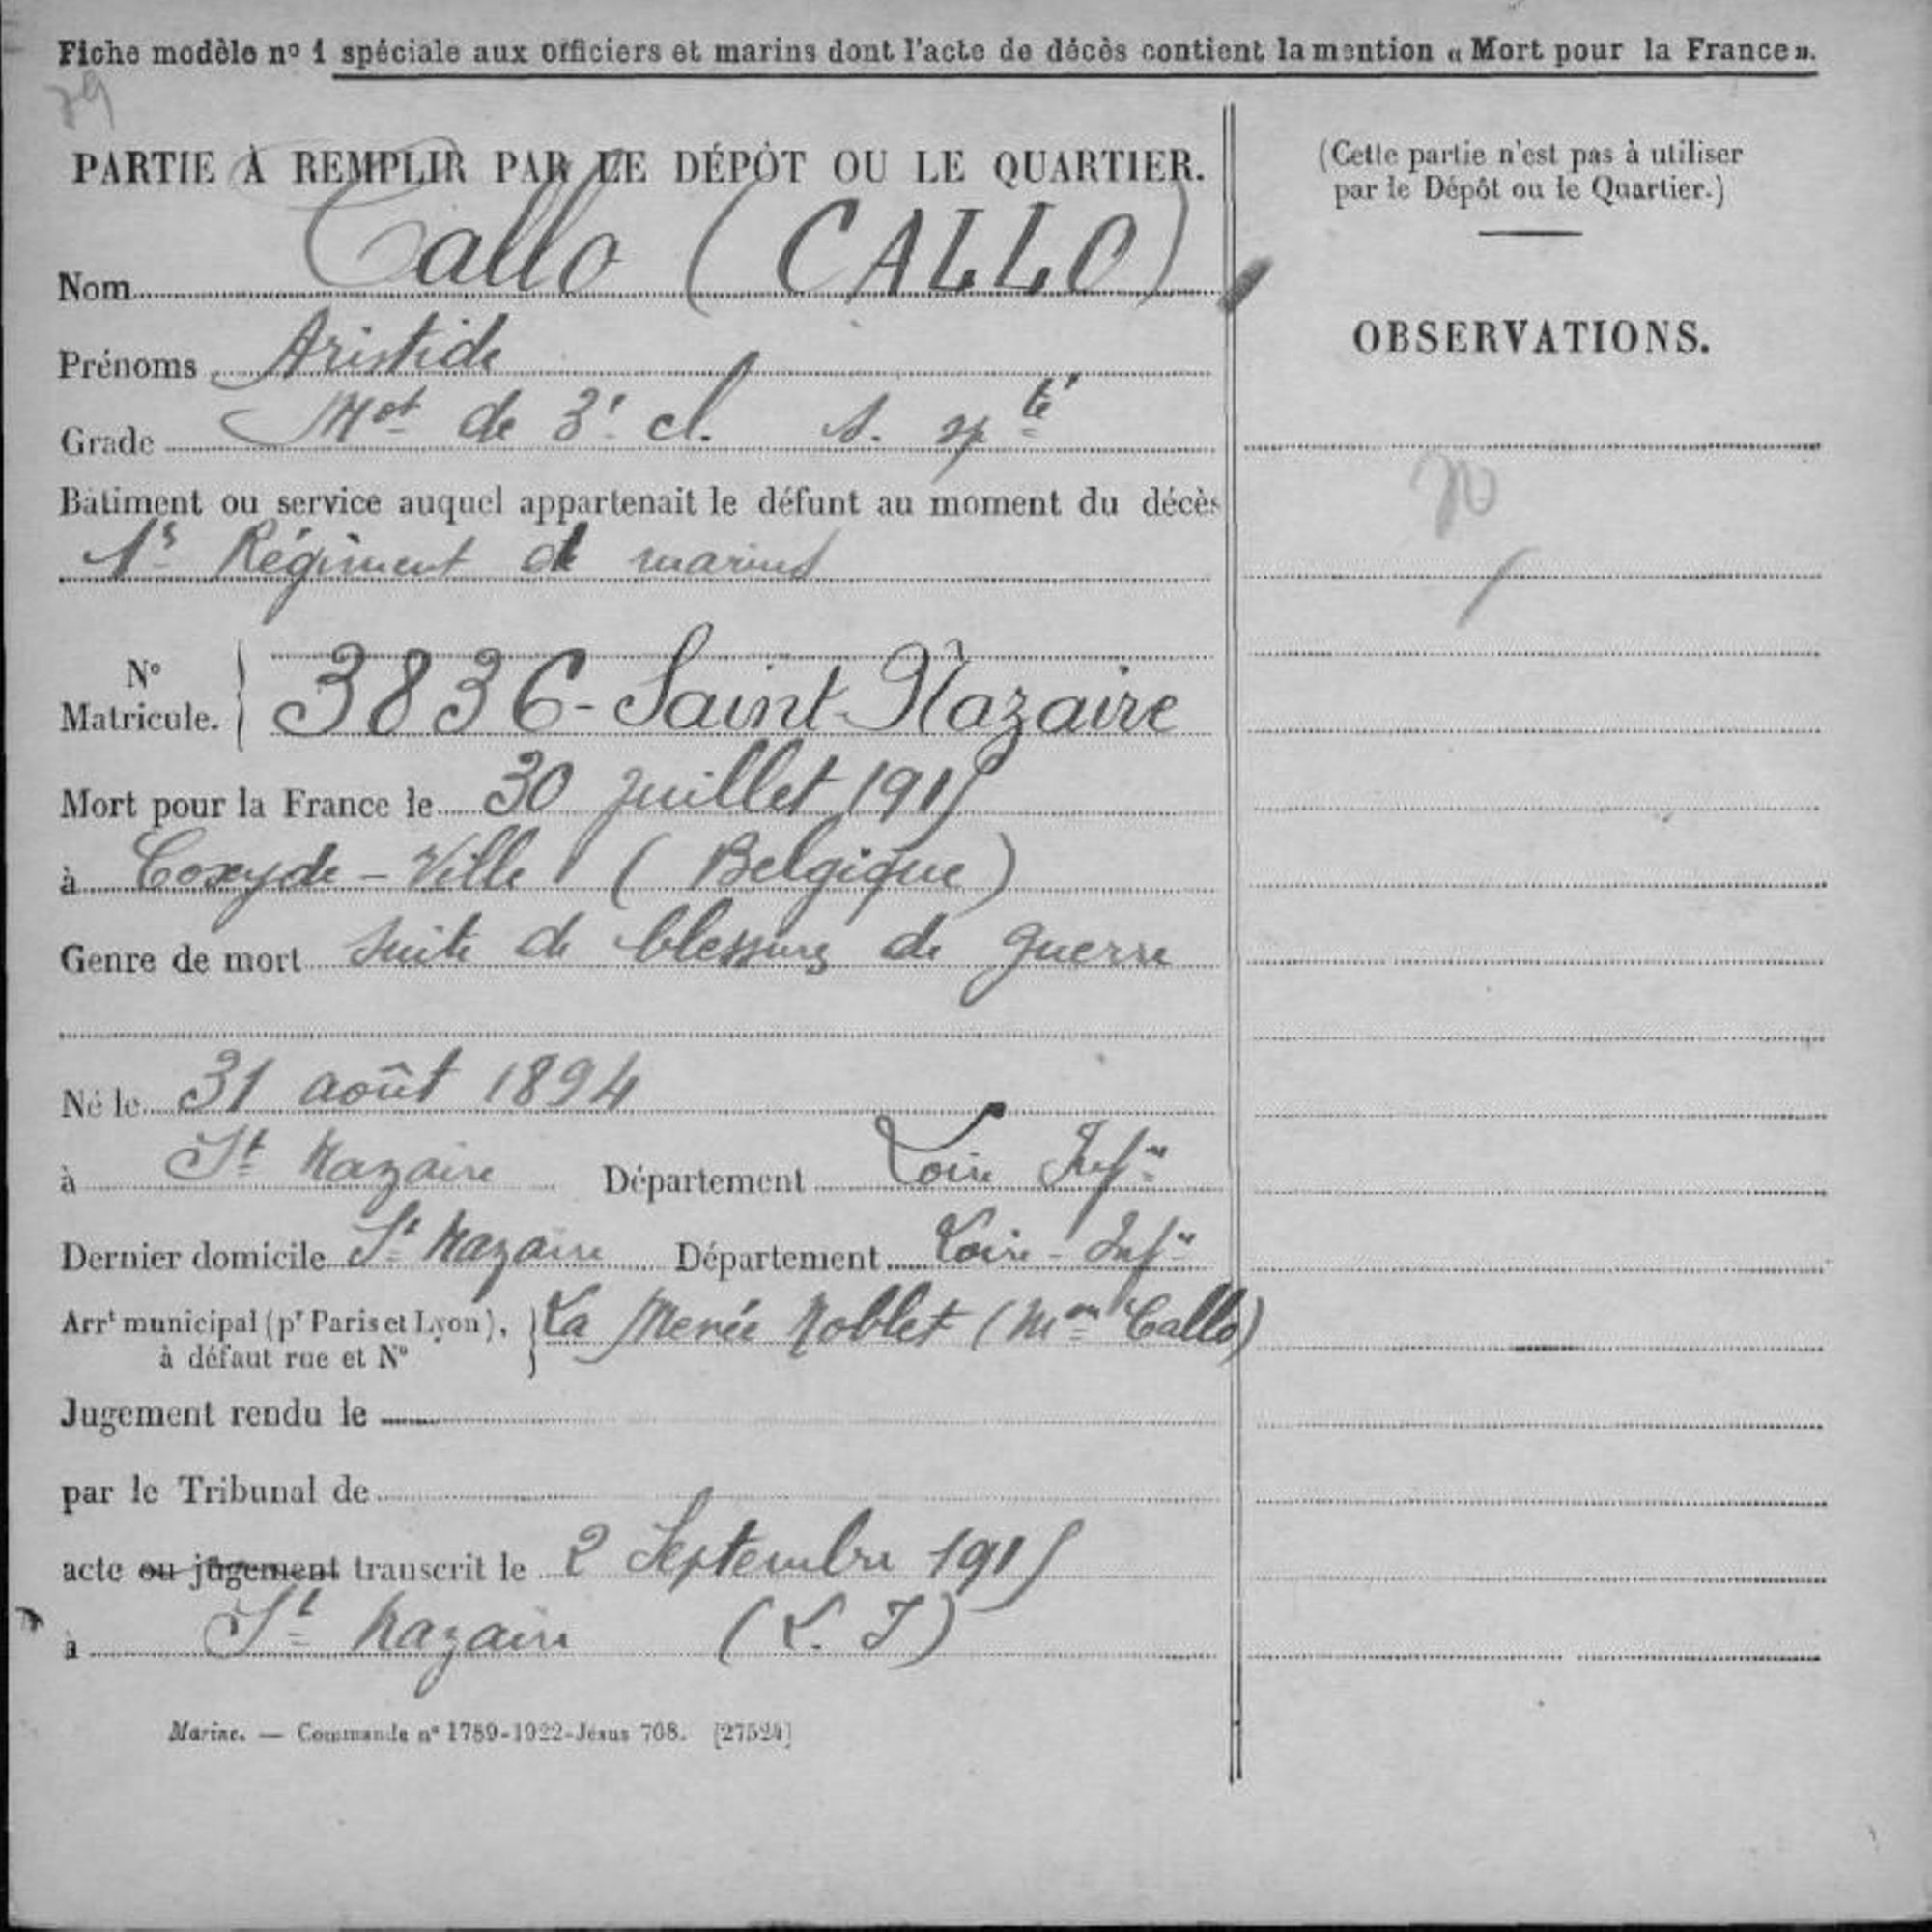 Fiche modèle nº 1 spéciale aux officiers et marins dont l'acte de décès contient la mention « Mort pour la France ».
79
PARTIE À REMPLIR PAR LE DÉPÔT OU LE QUARTIER.
Nom Callo (CALLO)
Prénoms Aristide
Grade Mot de 3e cl. s. spté
Bâtiment ou service auquel appartenait le défunt au moment du décès
1r Régiment de marins
Nº Matricule. } 3836 - Saint-Nazaire
Mort pour la France le 30 juillet 1915
à Coxyde - Ville (Belgique)
Genre de mort suite de blessures de guerre
Né le 31 août 1894
à St Nazaire Département Loire Infre
Dernier domicile St Nazaire Département Loire - Infre
Arrt municipal (pr Paris et Lyon), à défaut rue et Nº } La Noblet (Mme Callo)
Jugement rendu le
par le Tribunal de
acte ou jugement transcrit le 2 Septembre 1915
à St Nazaire (L. I)
Marine. — Commande nº 1789-1922-Jésus 708. [27524]
(Cette partie n'est pas à utiliser
par le Dépôt ou le Quartier.)
OBSERVATIONS.